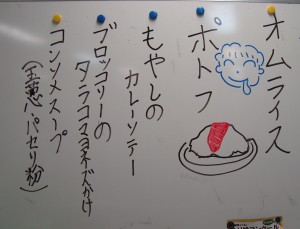 オムライス
ポトフ
もやしの
カレーソテー
ブロッコリーの
タラコマヨネーズかけ
コンソメスープ
(玉葱・パセリ粉)